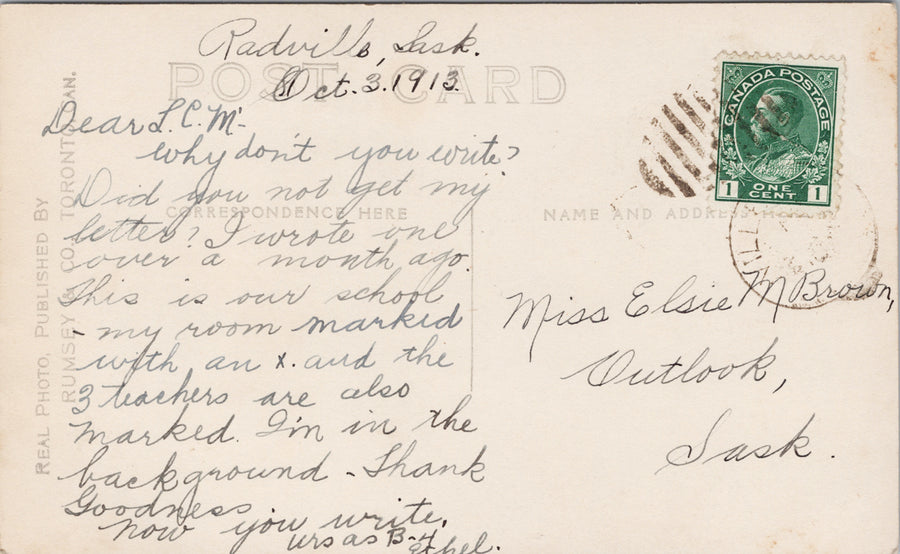 Radville, Sask.
Oct. 3. 1913.
POST CARD
Dear L.C.M.-
Why don't you write?
Did you not get my
letter? I wrote one
over a month ago.
This is our school
- my room marked
with an x. and the
3 teachers are also
marked. I'm in the
background - Thank
Goodness
now you write.
urs as B-4
Ethel.
CORRESPONDENCE HERE
NAME AND ADDRESS HERE
REAL PHOTO, PUBLISHED BY
RUMSEY & CO. TORONTO, CAN.
CANADA POSTAGE
1 ONE CENT 1
Miss Elsie M Brown,
Outlook,
Sask.